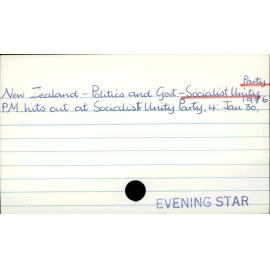 Party
New Zealand - Politics and Govt. - Socialist Unity
P.M. hits out at Socialist Unity Party. 4. Jan 30, 1976
EVENING STAR